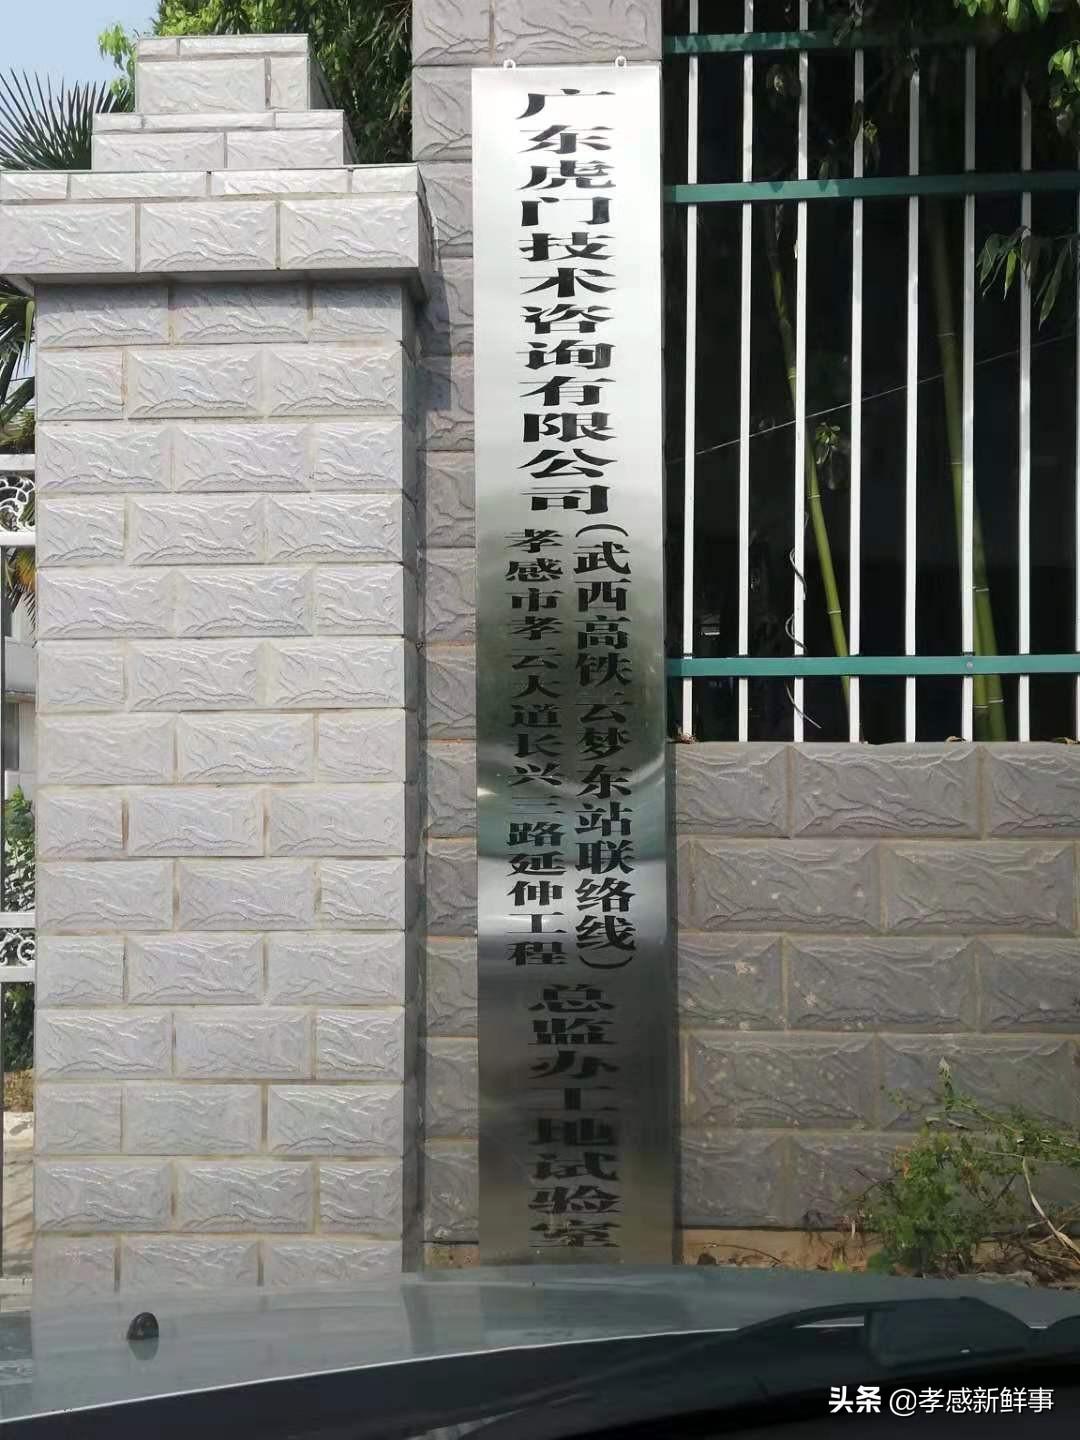 广东虎门技术咨询有限公司
(武西高铁云梦东站联络线)
孝感市孝云大道长兴三路延伸工程
总监办工地试验室
头条 @孝感新鲜事